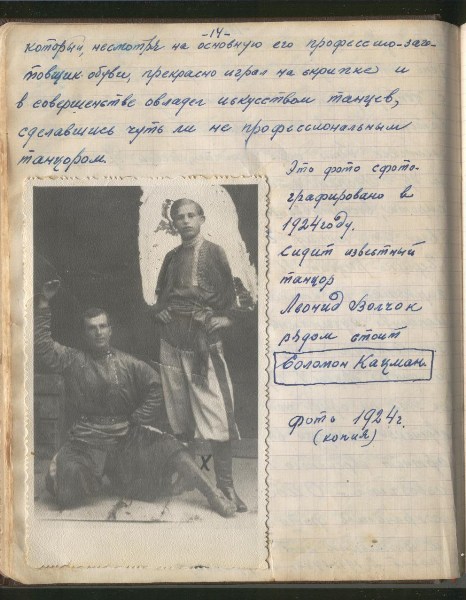 -14-
который, несмотря на основную его профессию-заго-
товщик обуви, прекрасно играл на скрипке и
в совершенстве овладел искусством танцев,
сделавшись чуть ли не профессиональным
танцором.
Это фото сфото-
графировано в
1924 году.
Сидит известный
танцор
Леонид Волчок
рядом стоит
Соломон Кацман.
фото 1924 г.
(копия)
X